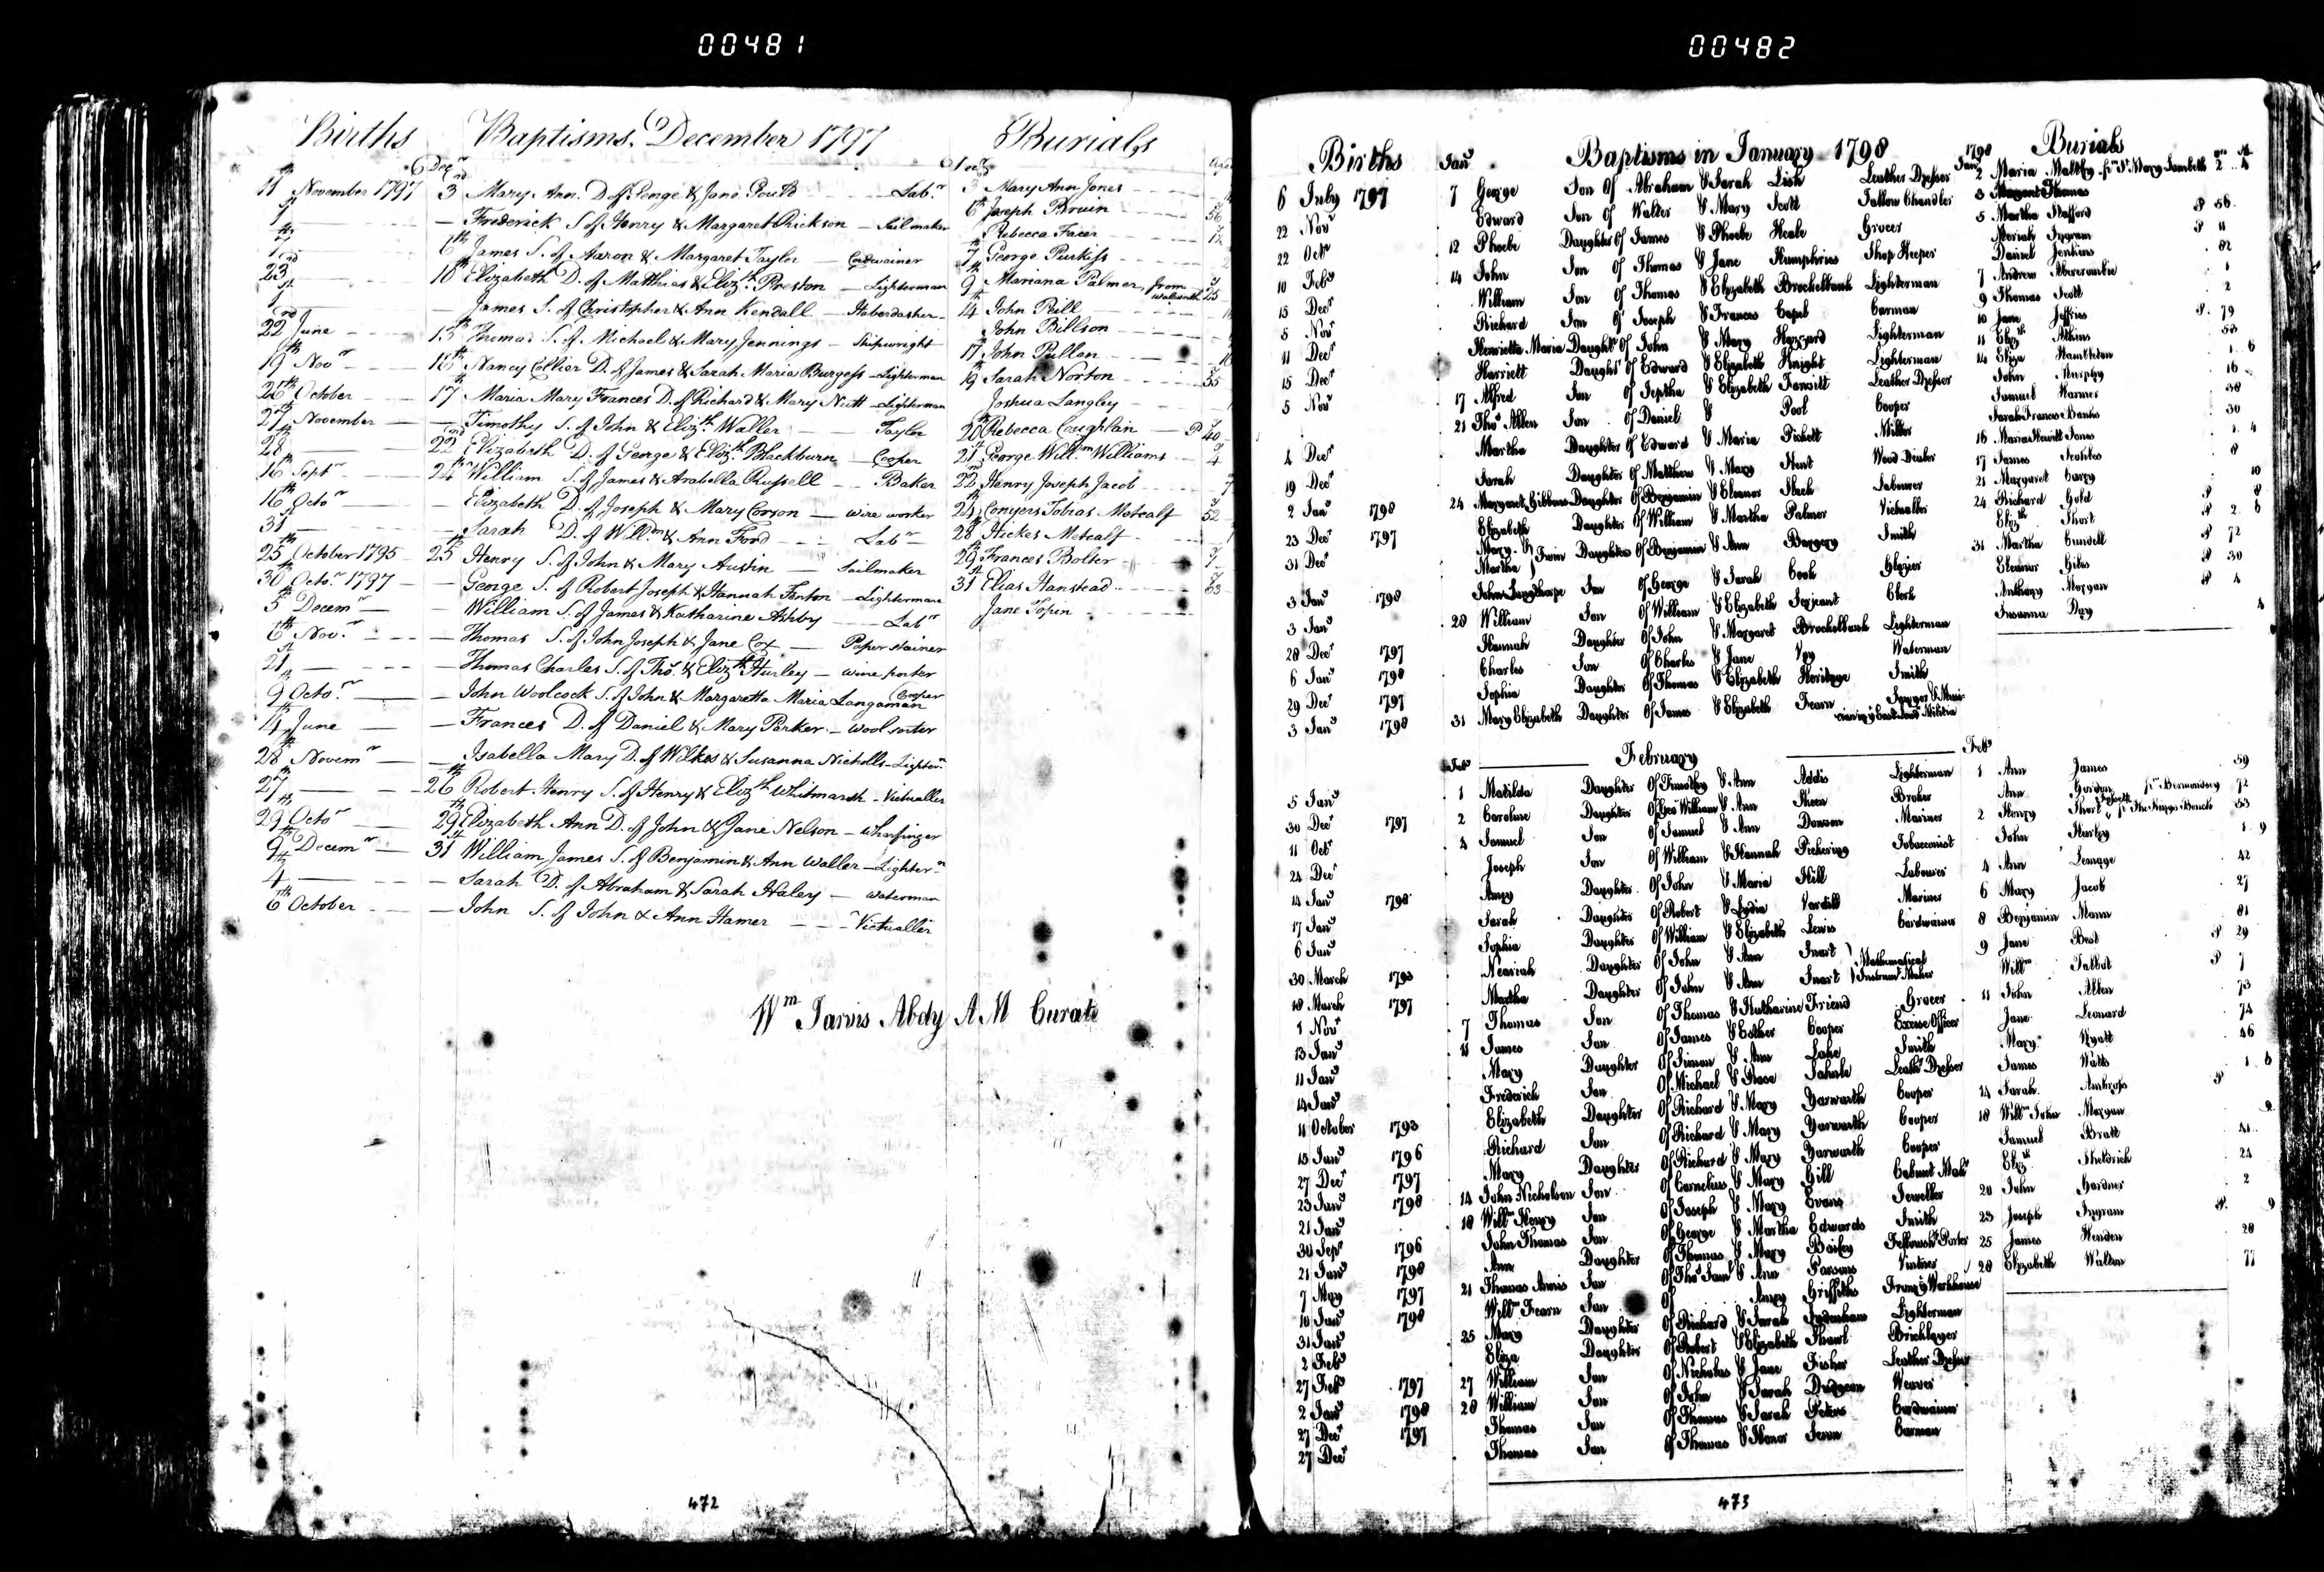 00481
Births Baptisms. December 1797 Burials
Decr
11th November 1797 3rd Mary Ann. D. of George & Jane Gould Labr 3 Mary Ann Jones
— Frederick S. of Henry & Margaret Rickson — Sail maker 6th Joseph Bruin 56
6th James S. of Aaron & Margaret Taylor — Cordwainer Rebecca Facer 12
23rd 10th Elizabeth D. of Matthias & Elizth Preston — Lighterman 7th George Purkiss
1st — James S. of Christopher & Ann Kendall — Haberdasher 9th Mariana Palmer, from Walworth
22nd June 13th Thomas S. of Michael & Mary Jennings — Shipwright 14th John Pell
John Billson
19th Novr Nancy Collier D. of James & Sarah Maria Burgess — Lighterman 17 John Pullen
26th October 17th Maria Mary Frances D. of Richard & Mary Nutt — Lighterman 19th Sarah Norton 35
27th November — Timothy S. of John & Elizth Waller — Taylor Joshua Langley
28th 22nd Elizabeth D. of George & Elizth Blackburn — Cooper 20th Rebecca Coughlan — P 40
16th Septr 24th William S. of James & Arabella Russell — Baker 21 George Willm Williams 4
16th Octor — Elizabeth D. of Joseph & Mary Corson — wire worker 22nd Henry Joseph Jacob
31st — Sarah D. of Willm & Ann Ford — Labr 24th Conyers Tobias Metcalf 52
25th October 1795 — 25th Henry S. of John & Mary Austin — Sailmaker 28th Hickes Metcalf
30th Octor 1797 — George S. of Robert Joseph & Hannah Fenton — Lighterman 29th Frances Bolter
5th Decemr — William S. of James & Katharine Ashby — Labr 31st Elias Hanstead 63
6th Novr — Thomas S. of John Joseph & Jane Cox — Paper stainer Jane
21st — Thomas Charles S. of Thos & Elizth Hurley — wine porter
9th Octor — John Woolcock S. of John & Margaretta Maria Langaman Cooper
14th June — Frances D. of Daniel & Mary Parker — wool sorter
28th Novemr — Isabella Mary D. of Wilkes & Susanna Nicholls — Lightern
27th — 26th Robert Henry S. of Henry & Elizth Whitmarsh — Victualler
29th Octor 29th Elizabeth Ann D. of John & Jane Nelson — Wharfinger
9th Decemr — 31st William James S. of Benjamin & Ann Waller — Lightern
4th — Sarah D. of Abraham & Sarah Haley — waterman
6th October — John S. of John & Ann Hamer — Victualler
Wm Jarvis Abdy A M Curate
472
00482
Births Jany Baptisms in January 1798 1798 Burials
6 July 1797 7 George Son Of Abraham & Sarah Lish Leather Dresser Jany 2 Maria Maltby fm St Mary Lambeth 2 4
22 Novr Edward Son Of Walter & Mary Scott Tallow Chandler 3 Margaret Thomas
22 Octr 12 Phoebe Daughter Of James & Phoebe Neale Grocer 5 Martha Stafford P 56
10 Feby 14 John Son Of Thomas & Jane Humphries Shop Keeper Meriah Ingram P 11
15 Decr William Son Of Thomas & Elizabeth Brockelbank Lighterman Daniel Jenkins 82
5 Novr Richard Son Of Joseph & Frances Capel Carman 7 Andrew Abercrombie 1
11 Decr Henrietta Maria Daughr Of John & Mary Hazzard Lighterman 9 Thomas Scott 2
15 Decr Harriett Daughr Of Edward & Elizabeth Knight Lighterman 10 Jane Jeffries P 79
5 Novr 17 Alfred Son Of Jeptha & Elizabeth Fawsitt Leather Dresser 11 Elizth Atkins 53
21 Thos Allen Son Of Daniel & Pool Cooper 14 Eliza Hambleton 1 6
4 Decr Martha Daughter Of Edward & Maria Pickett Miller John Murphy 16
19 Decr Sarah Daughter Of Matthew & Mary Hunt Wood Dealer Samuel Harmer 38
2 Jany 1798 24 Margaret Gibbons Daughter Of Benjamin & Eleanor Slack Labourer Sarah Frances Banks 30
23 Decr 1797 Elizabeth Daughter Of William & Martha Palmer Victualler 16 Maria Hewitt Jones 1 4
31 Decr Mary & Martha Twin Daughters Of Benjamin & Ann Smith 17 James 8
3 Jany 1798 John Son Of George & Sarah Cook Glazier 21 Margaret 10
3 Jany 28 William Son Of William & Elizabeth Serjeant Clerk 24 Richard Gold P 8
28 Decr 1797 Hannah Daughter Of John & Margaret Brockelbank Lighterman Elizth Short P 2 6
6 Jany 1798 Charles Son Of Charles & Jane Voy Waterman 31 Martha Cundell P 72
29 Decr 1797 Sophia Daughter Of Thomas & Elizabeth Heritage Smith Eleanor Giles P 30
3 Jany 1798 31 Mary Elizabeth Daughter Of James & Elizabeth Fearn Anthony Morgan P 4
Susanna Day 4
Feby February Feby
5 Jany 1 Matilda Daughter Of Timothy & Ann Addis Lighterman 1 Ann James 59
30 Decr 1797 2 Caroline Daughter Of Geo William & Ann Sheen Broker Ann Gordon fm Bermondsey 72
11 Octr 4 Samuel Son Of Samuel & Ann Dowson Mariner 2 Henry Short fm The Kings Bench 53
24 Decr Joseph Son Of William & Hannah Pickering Tobacconist John Hurley 1 9
14 Jany 1798 Amy Daughter Of John & Maria Hill Labourer 4 Ann Lemage 42
17 Jany Sarah Daughter Of Robert & Lydia Vardill Mariner 6 Mary Jacob 27
6 Jany Sophia Daughter Of William & Elizabeth Lewis Cordwainer 8 Benjamin Mann 81
30 March 1793 Neariah Daughter Of John & Ann Snart Mathematical 9 Jane Best P 29
18 March 1797 Martha Daughter Of John & Ann Snart Instrumt Maker Willm Talbot P 7
1 Novr Thomas Son Of Thomas & Katharine Friend Grocer 11 John Allen 73
13 Jany 7 James Son Of James & Esther Cooper Excise Officer Jane Leonard 74
11 Jany 11 Mary Daughter Of Simon & Ann Lake Smith Mary Wyatt 46
14 Jany Frederick Son Of Michael & Rose Leathr Dresser James Watts 1 6
11 October 1793 Elizabeth Daughter Of Richard & Mary Yarworth Cooper 14 Sarah Ambross P
15 Jany 1796 Richard Son Of Richard & Mary Yarworth Cooper 18 Willm John Morgan
27 Decr 1797 Mary Daughter Of Richard & Mary Yarworth Cooper Samuel Bratt 41
23 Jany 1798 14 John Nicholson Son Of Cornelius & Mary Gill Cabinet Makr Elizth Sheldrick 24
21 Jany 18 Willm Henry Son Of Joseph & Mary Evans Jeweller 20 John Gardner 2
30 Sepr 1796 John Thomas Son Of George & Martha Edwards Smith 23 Joseph Ingram P 9
21 Jany 1798 Ann Daughter Of Thomas & Mary Bailey Fellowship Porter 25 James Henden 28
7 May 1797 21 Thomas Annis Son Of Thos Saml & Ann Parsons Vintner 28 Elizabeth Walton 77
10 Jany 1798 Willm Fearn Son Of Amey Griffiths From ye Workhouse
31 Jany 25 Mary Daughter Of Richard & Sarah Lydenham Lighterman
2 Feby Eliza Daughter Of Robert & Elizabeth Shawl Bricklayer
27 Feby 1797 27 William Son Of Nicholas & Jane Fisher Leather Dresser
2 Jany 1798 28 William Son Of John & Sarah Dudgeon Weaver
27 Decr 1797 Thomas Son Of Thomas & Sarah Peters Cordwainer
27 Decr Thomas Son Of Thomas & Honor Fenn Carman
473